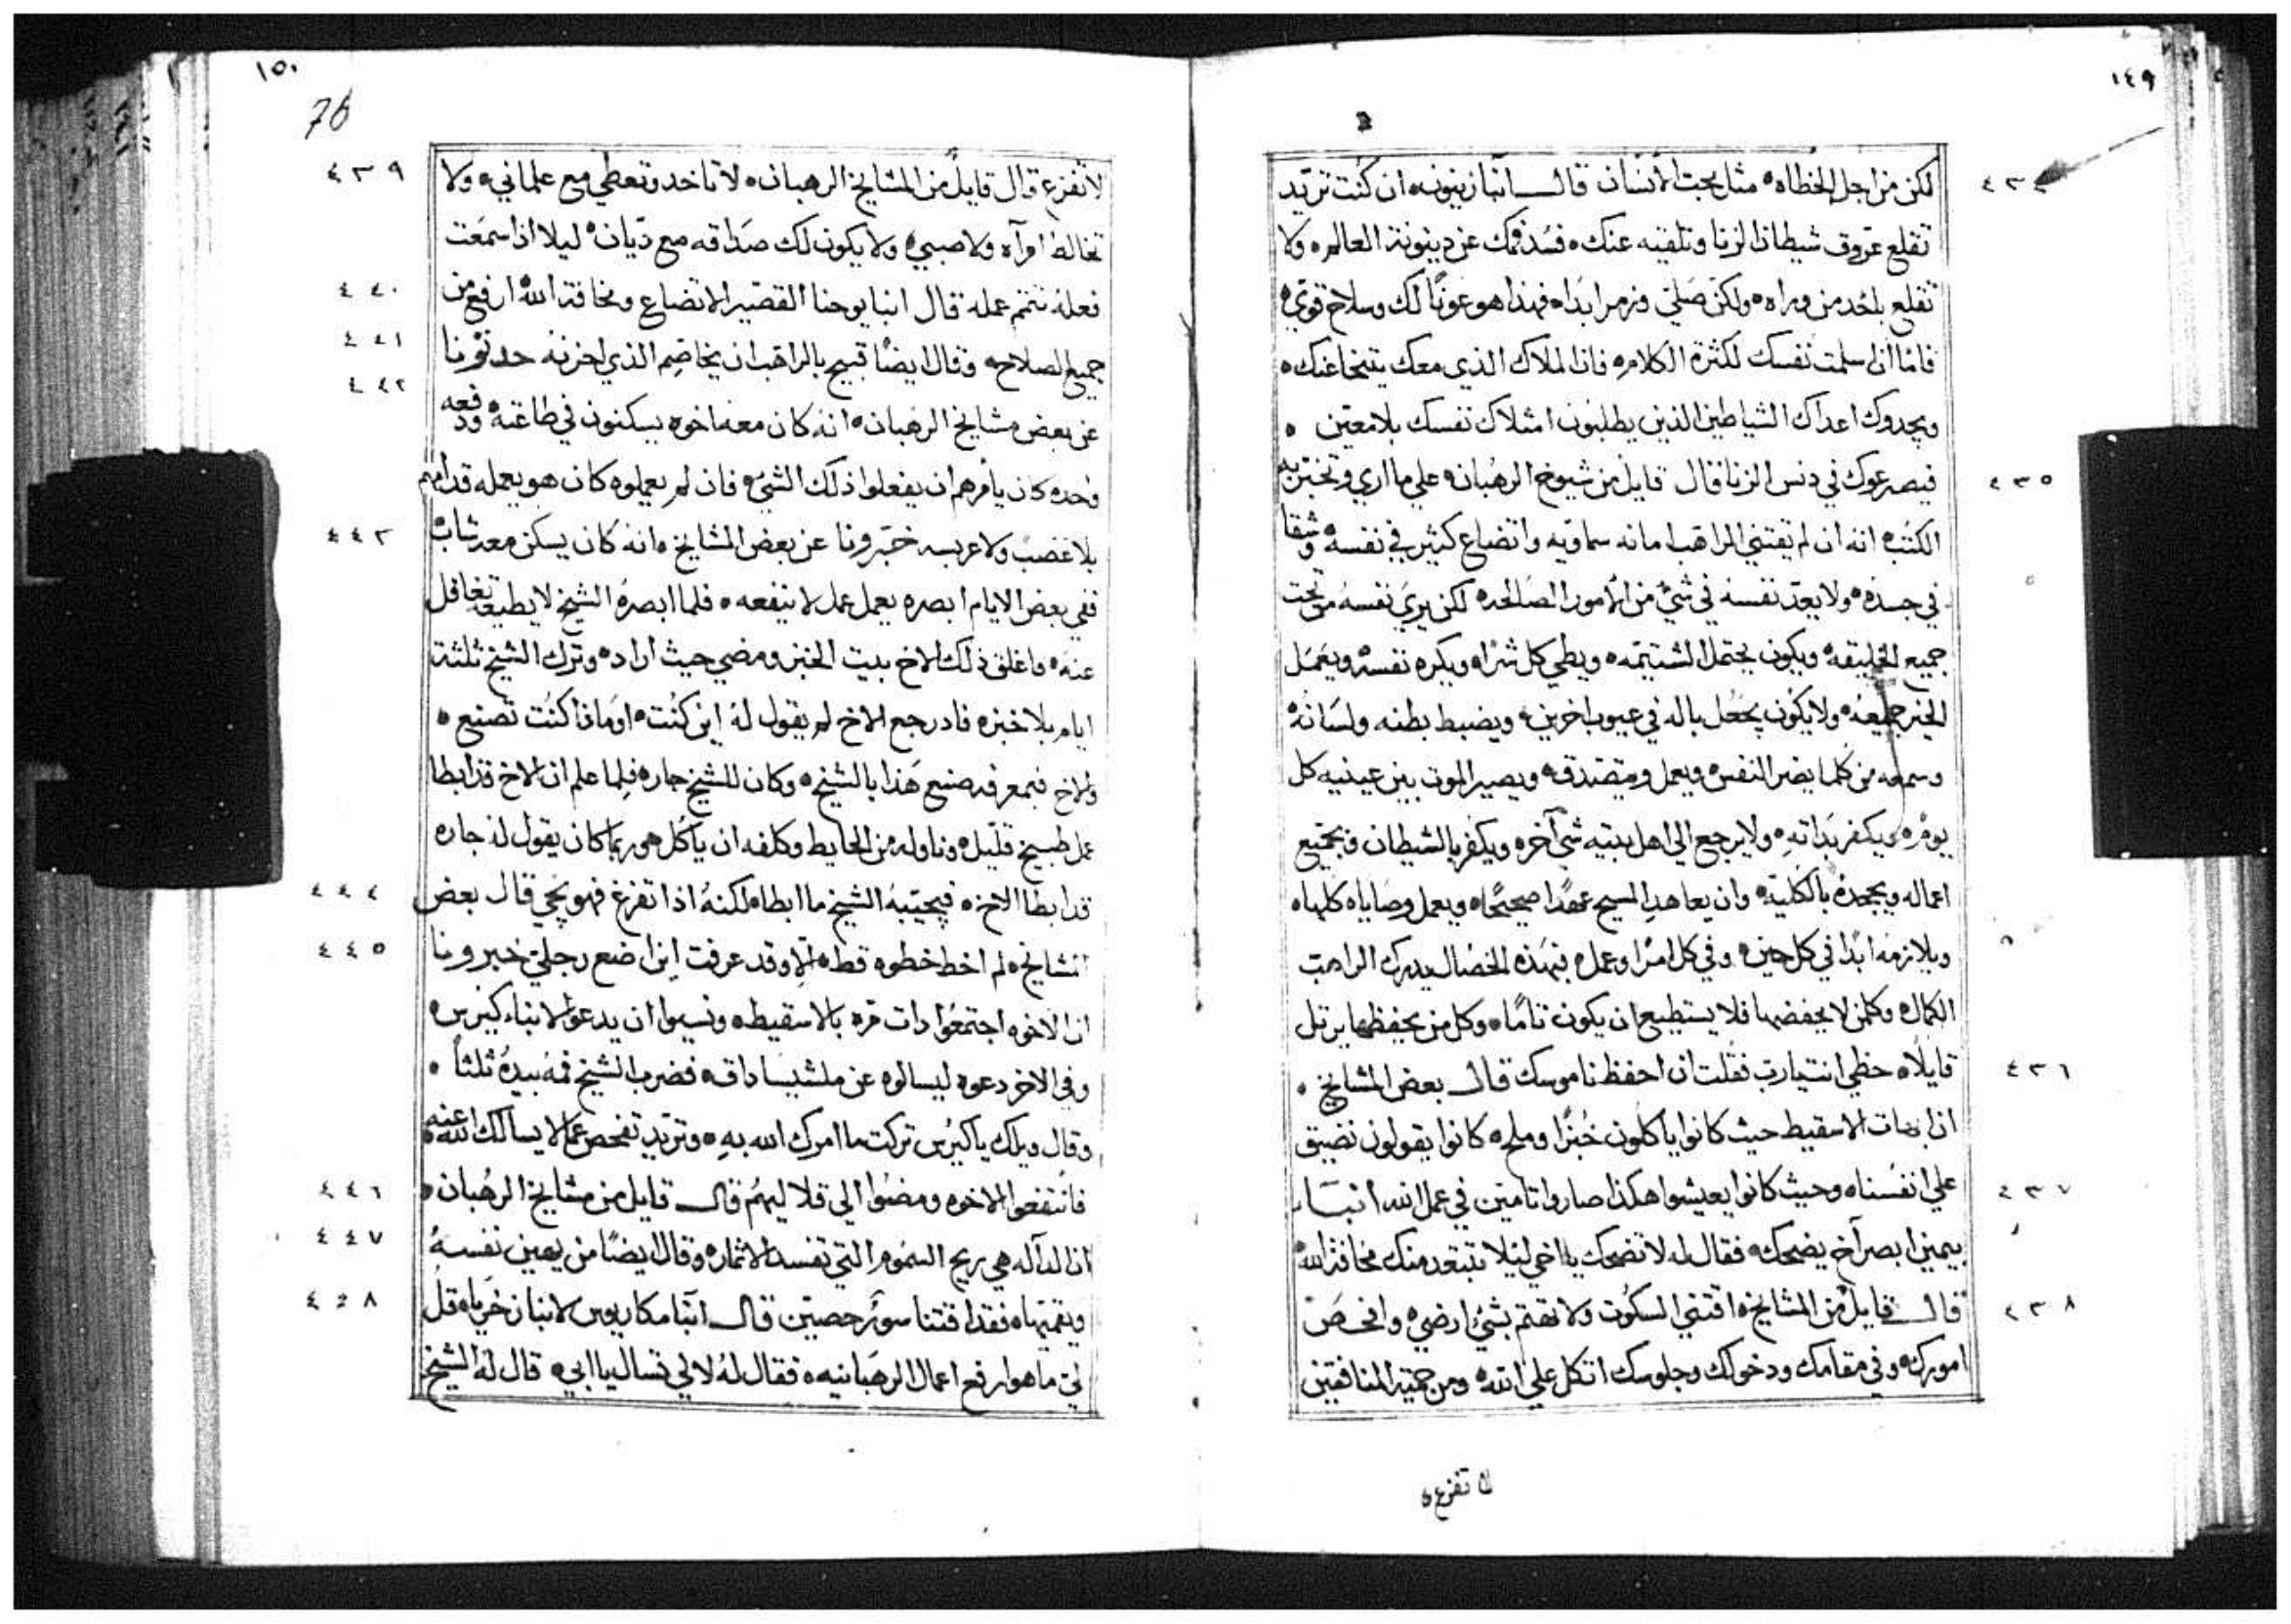 ١٤٩
٤٣٤
لكن من اجل الخطاه مثل يجب الانسان قال انبا زينون ان كنت تريد
تقلع عروق شيطان الزنا وتلقيه عنك فسد فمك عن دينونة العالم ولا
تقلع باحد من وراه ولكن صلي وزمر ابدا فهذا هو عونا لك وسلاح قوي
فاما ان اسلمت نفسك لكثرة الكلام فان الملاك الذي معك يتنحا عنك
ويجدوك اعداك الشياطين الذين يطلبون امتلاك نفسك بلا معين
٤٣٥
فيصرعوك في دنس الزنا قال قايل من شيوخ الرهبان علي ما اري وتخبر به
الكتب انه ان لم يقتني الراهب امانه سماويه واتضاع كثير في نفسه وشقا
في جسده ولا يعد نفسه في شي من الامور الصالحه لكن يري نفسه من تحت
جميع الخليقه ويكون يحتمل الشتيمه ويطي كل شراه ويكره نفسه ويعمل
الخير جميعه ولا يكون يجعل باله في عيوب اخرين ويضبط بطنه ولسانه
وسمعه من كلما يضر النفس ويعمل ومتصدقه ويصير الموت بين عينيه كل
يوم ويكفر بذاته ولا يرجع الي اهل بيته شي آخر ويكفر بالشيطان وبجميع
اعماله ويجحده بالكليه وان يعاهد المسيح عهدا صحيحا ويعمل وصاياه كلها
ويلازمه ابدا في كل حين وفي كل امر اوعمل فبهذه الخصال يدرك الراهب
الكمال وكلمن لا يحفضها فلا يستطيع ان يكون تاما وكل من يحفظها يرتل
٤٣٦
قايلا حظي انت يارب فقلت ان احفظ ناموسك قال بعض المشايخ
ان ابهات الاسقيط حيث كانوا ياكلون خبزا وملح كانوا يقولون نضيق
٤٣٧
علي انفسنا وحيث كانوا يعيشوا هكذا صاروا تامين في عمل الله انبا
بيمين ابصر آخ يضحك فقال له لا تضحك يا اخي ليلا تبتعد منك مخافة الله
٤٣٨
قال قايل من المشايخ اقتني السكوت ولا تهتم بشي ارضي وافحص
امورك وفي مقامك ودخولك وجلوسك اتكل علي الله ومن جهة المنافقين
لا تفزع
١٥٠
76
٤٣٩
لا تفزع قال قايل من المشايخ الرهبان لا تاخد وتعطي مع علماني ولا
تخالط امرآه ولا صبي ولا يكون لك صداقه مع ديان ليلا اذا سمعت
٤٤٠
فعله تتمم عمله قال انبا يوحنا القصير الاتضاع ومخافة الله ارفع من
٤٤١
جميع الصلاح وقال ايضا قبيح بالراهب ان يخاصم الذي احزنه حدثونا
٤٤٢
عن بعض مشايخ الرهبان انه كان معه اخوه يسكنون في طاعته ودفعه
وحده كان يامرهم ان يفعلوا ذلك الشي فان لم يعملوه كان هو يعمله قدامهم
٤٤٣
بلا غضب ولا عربسه خبرونا عن بعض المشايخ انه كان يسكن معه شاب
ففي بعض الايام ابصره يعمل عمل لا ينفعه فلما ابصره الشيخ لا يطيعه تغافل
عنه واغلق ذلك الاخ بيت الخبز ومضي حيث اراد وترك الشيخ ثلثة
ايام بلا خبز فاد رجع الاخ لم يقول له اين كنت او ماذا كنت تصنع
والاخ فبمعرفه صنع هذا بالشيخ وكان للشيخ جار فلما علم ان الاخ قد ابطا
عمل طبيخ قليل وناوله من الحايط وكلفه ان ياكل هو ربما كان يقول له جاره
٤٤٤
قد ابطا الاخ فيجيبه الشيخ ما ابطا لكنه اذا تفرغ فهو يجي قال بعض
٤٤٥
المشايخ لم اخط خطوه قط الا وقد عرفت اين اضع رجلي خبرونا
ان الاخوه اجتمعوا دات مره بالاسقيط ونسيوا ان يدعوا لانباء كيرس
وفي الاخر دعوه ليسالوه عن ملشيساداق فضرب الشيخ فمه بيده ثلثا
وقال ويلك ياكيرس تركت ما امرك الله به وتريد تفحص عما لا يسالك الله عنه
٤٤٦
فانتفعوا الاخوه ومضوا الي قلاليهم قال قايل من مشايخ الرهبان
٤٤٧
ان الدآله هي ريح السموم التي تفسد الاثمار وقال ايضا من يهين نفسه
٤٤٨
ويقمتها فقد اقتنا سور حصين قال انبا مكاريوس لانبا زخريا قل
لي ما هو ارفع اعمال الرهبانيه فقال له لا لي تسال يا ابي قال له الشيخ